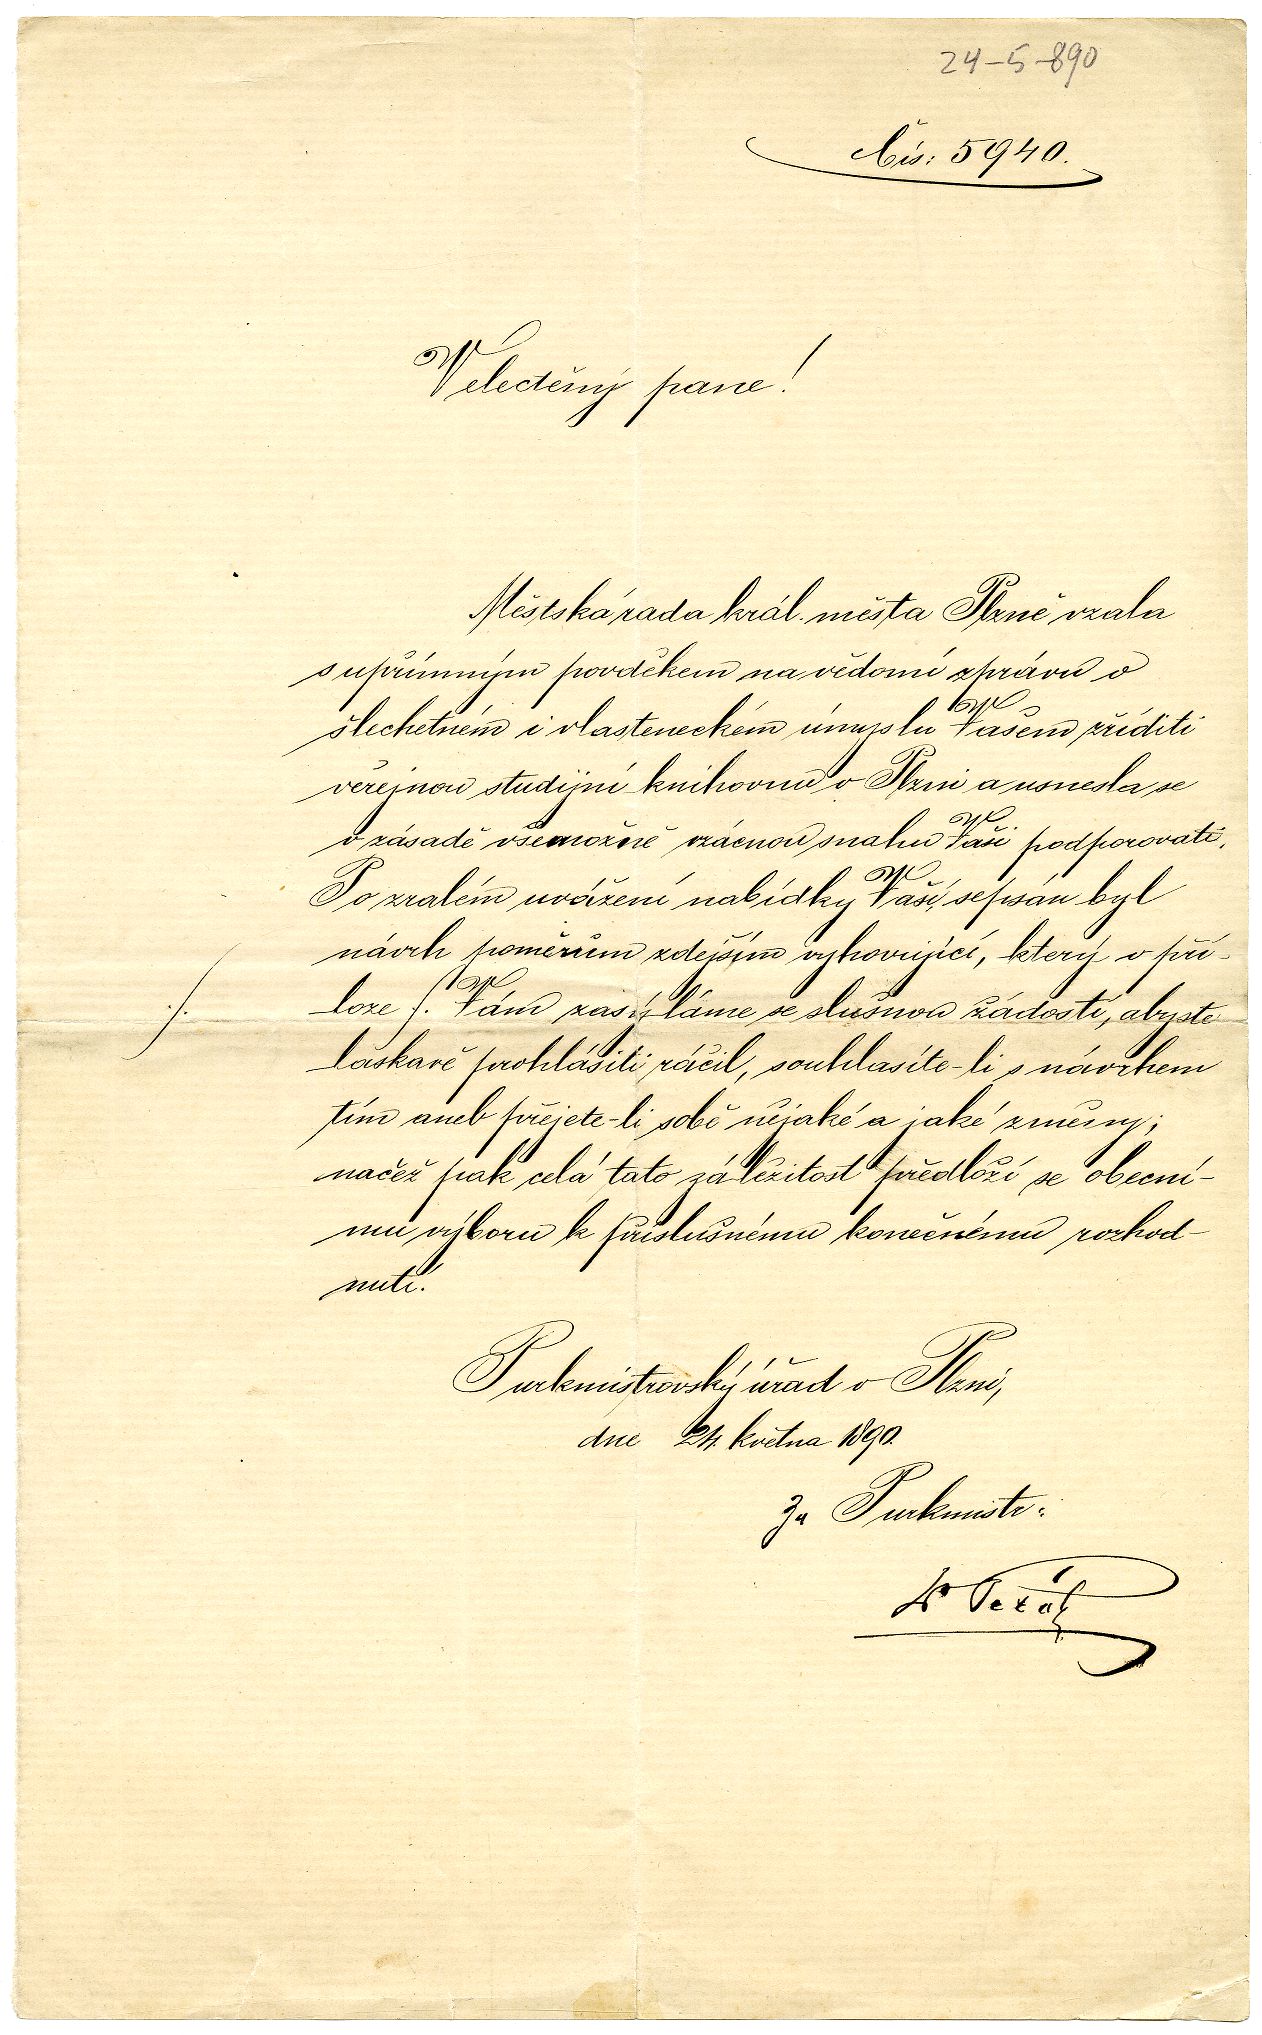 24-5-890
Čís: 5940.
Velectěný pane!
Městská rada král. města Plzně vzala
s upřímným povděkem na vědomí zprávu o
šlechetném i vlasteneckém úmyslu Vašem zříditi
veřejnou studijní knihovnu v Plzni a usnesla se
v zásadě všemožně vzácnou snahu Vaši podporovati.
Po zralém uvážení nabídky Vaší, sepsán byl
návrh poměrům zdejším vyhovující, který v pří-
loze /. Vám zasýláme se slušnou žádostí, abyste
./.
laskavě prohlásiti ráčil, souhlasíte-li s návrhem
tím aneb přejete-li sobě nějaké a jaké změny;
načež pak celá tato záležitost předloží se obecní-
mu výboru k příslušnému konečnému rozhod-
nutí.
Purkmistrovský úřad v Plzni,
dne 24. května 1890.
Za Purkmistr: